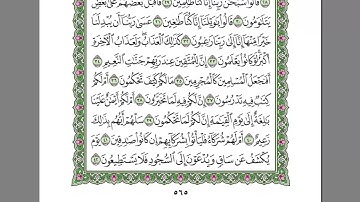 قَالُوا۟ سُبْحَٰنَ رَبِّنَآ إِنَّا كُنَّا ظَٰلِمِينَ ٢٩ فَأَقْبَلَ بَعْضُهُمْ عَلَىٰ بَعْضٍ
يَتَلَٰوَمُونَ ٣٠ قَالُوا۟ يَٰوَيْلَنَآ إِنَّا كُنَّا طَٰغِينَ ٣١ عَسَىٰ رَبُّنَآ أَن يُبْدِلَنَا
خَيْرًا مِّنْهَآ إِنَّآ إِلَىٰ رَبِّنَا رَٰغِبُونَ ٣٢ كَذَٰلِكَ ٱلْعَذَابُ وَلَعَذَابُ ٱلْءَاخِرَةِ
أَكْبَرُ لَوْ كَانُوا۟ يَعْلَمُونَ ٣٣ إِنَّ لِلْمُتَّقِينَ عِندَ رَبِّهِمْ جَنَّٰتِ ٱلنَّعِيمِ ٣٤
أَفَنَجْعَلُ ٱلْمُسْلِمِينَ كَٱلْمُجْرِمِينَ ٣٥ مَا لَكُمْ كَيْفَ تَحْكُمُونَ ٣٦ أَمْ لَكُمْ
كِتَٰبٌ فِيهِ تَدْرُسُونَ ٣٧ إِنَّ لَكُمْ فِيهِ لَمَا تَخَيَّرُونَ ٣٨ أَمْ لَكُمْ أَيْمَٰنٌ عَلَيْنَا
بَٰلِغَةٌ إِلَىٰ يَوْمِ ٱلْقِيَٰمَةِ إِنَّ لَكُمْ لَمَا تَحْكُمُونَ ٣٩ سَلْهُمْ أَيُّهُم بِذَٰلِكَ
زَعِيمٌ ٤٠ أَمْ لَهُمْ شُرَكَآءُ فَلْيَأْتُوا۟ بِشُرَكَآئِهِمْ إِن كَانُوا۟ صَٰدِقِينَ ٤١ يَوْمَ
يُكْشَفُ عَن سَاقٍ وَيُدْعَوْنَ إِلَى ٱلسُّجُودِ فَلَا يَسْتَطِيعُونَ ٤٢
٥٦٥